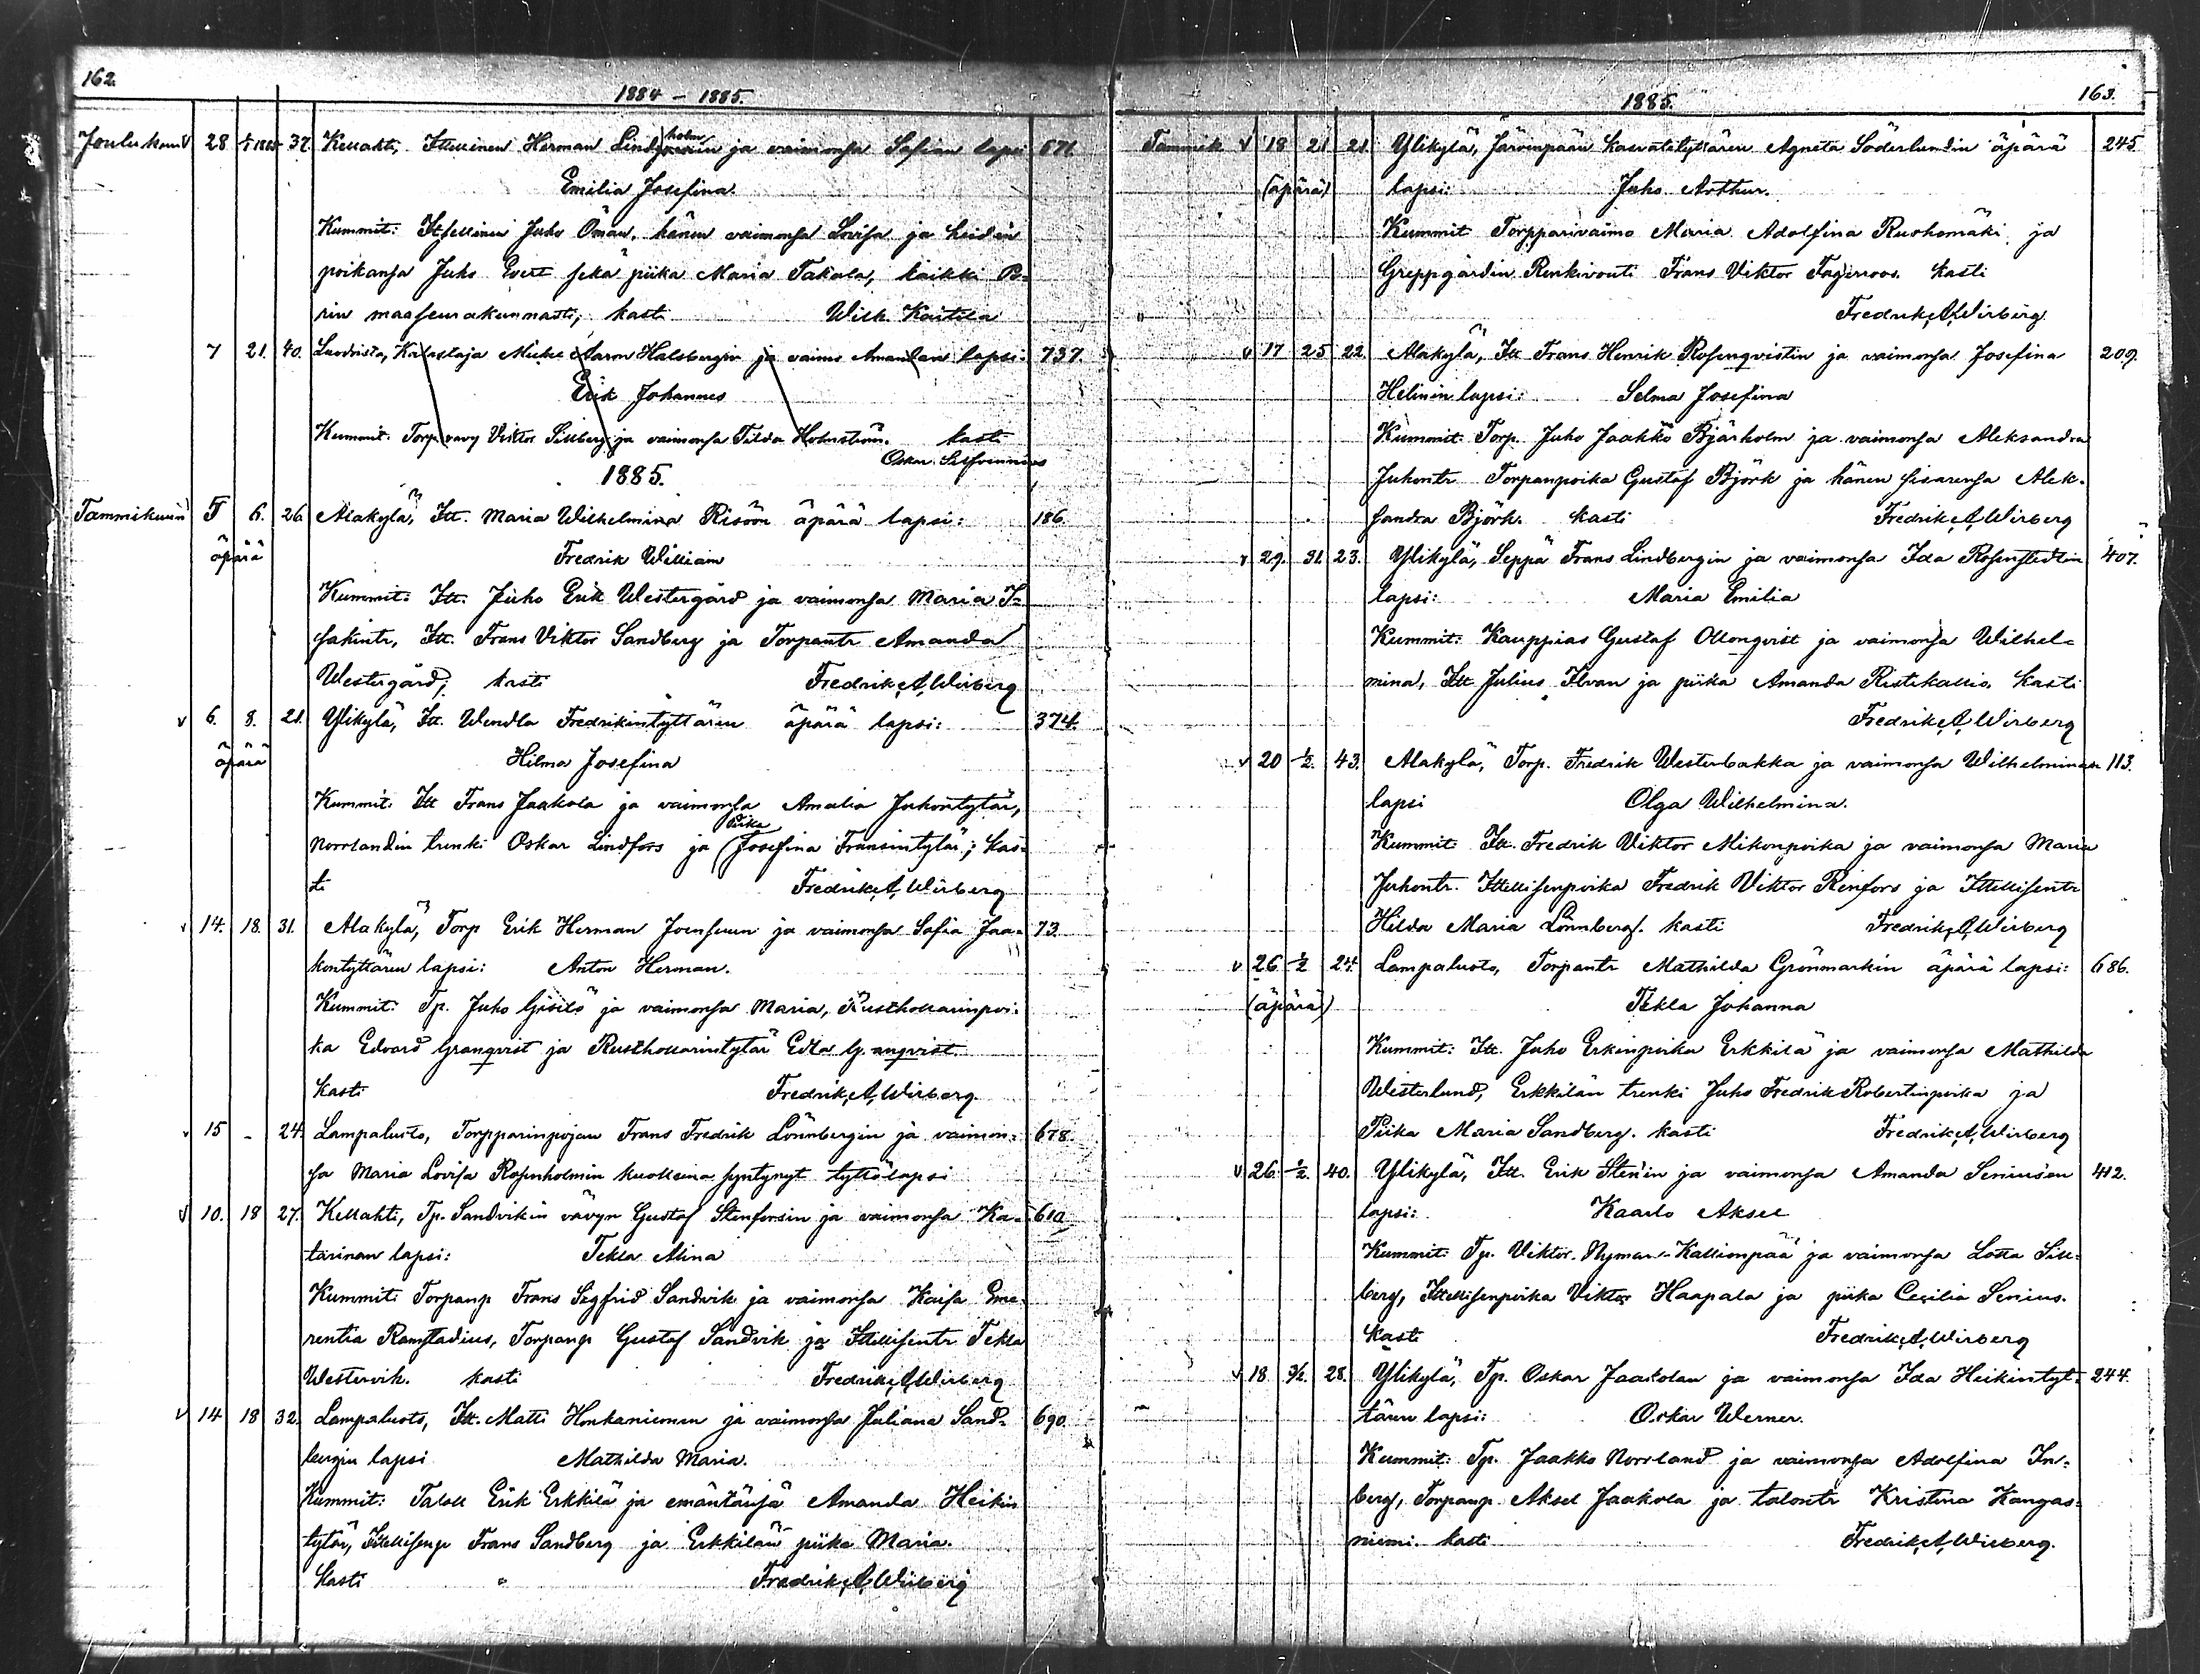 162.
1884 – 1885.
Joulukuu 28 1/1 1885 37. Kellahti, Itsellinen Herman Lindholm ja vaimonsa Sofian lapsi 671
Emilia Josefina.
Kummit: Itsellinen Juho Öman, hänen vaimonsa Lovisa ja heidän
poikansa Juho Evert sekä piika Maria Takala, kaikki Po-
rin maaseurakunnasta; kasti Wilh. Kaitila
7 21. 40. Luodvista, Kalastaja Micke Aaron Halsbergin ja vaimo Amandan lapsi: 737.
Erik Johannes
Kummit: Torp. vävy Viktor Sillberg ja vaimonsa Tilda Holmström. kasti
Oskar
1885.
Tammikuun 5 6. 26 Alakylä, Itt. Maria Wilhelmina Risöön äpärä lapsi: 186.
äpärä Fredrik William
Kummit: Itt. Juho Erik Westergård ja vaimonsa Maria I-
sakintr, Itt. Frans Viktor Sandberg ja Torpantr Amanda
Westergård; kasti Fredrik A. Wirberg
v 6. 8. 21. Ylikylä, Itt. Wendla Fredrikintyttären äpärä lapsi: 374.
äpärä Hilma Josefina
Kummit: Itt Frans Jaakola ja vaimonsa Amalia Juhontytär,
Norrlandin trenki Oskar Lindfors ja Piika Josefina Fransintytär; kas-
ti Fredrik A. Wirberg
v 14. 18. 31. Alakylä, Torp Erik Herman Joensuun ja vaimonsa Sofia Jaa- 73.
kontyttären lapsi: Anton Herman.
Kummit: Tp. Juho Gisilö ja vaimonsa Maria, Rusthollarinpoi-
ka Edvard Granqvist ja Rusthollarintytär Edla G. anqvist.
kasti Fredrik A. Wirberg.
v 15 - 24. Lampaluoto, Torpparinpojan Frans Fredrik Lönnbergin ja vaimon- 678.
sa Maria Lovisa Rosenholmin kuolleena syntynyt tyttölapsi
v 10. 18 27. Kellahti, Tp. Sandvikin vävyn Gustaf Stenforsin ja vaimonsa Ka- 610
tarinan lapsi: Tekla Alina
Kummit: Torpanp Frans Segfrid Sandvik ja vaimonsa Kaisa Eme-
rentia Ramstadius, Torpanp Gustaf Sandvik ja Itsellisentr Tekla
Westervik. kasti Fredrik A. Wirberg
v 14 18 32. Lampaluoto, Itt. Matti Honkaniemen ja vaimonsa Juliana Sand- 690.
bergin lapsi Mathilda Maria.
Kummit: Taloll Erik Erkkilä ja emäntänsä Amanda Heikin
tytär, Itsellisenp Frans Sandberg ja Erkkilän piika Maria.
Kasti Fredrik A. Wirberg
1885. 163.
Tammik v 18 21 21. Ylikylä, Järvenpään kasvatitytären Agneta Söderlundin äpärä 245
(äpärä) lapsi: Juho Arthur.
Kummit Torpparivaimo Maria Adolfina Ruohomäki ja
Greppgårdin Renkivouti Frans Viktor Fagerroos. kasti
Fredrik A. Wirberg
v 17 25 22. Alakylä, Itt Frans Henrik Rosenqvistin ja vaimonsa Josefina 209.
Helinin lapsi: Selma Josefina
Kummit: Torp. Juho Jaakko Bjärholm ja vaimonsa Aleksandra
Juhontr Torpanpoika Gustaf Björk ja hänen sisarensa Alek-
sandra Björk. kasti Fredrik A. Wirberg
v 29. 31. 23. Ylikylä, Seppä Frans Lindbergin ja vaimonsa Ida Rosenstedtin 407.
lapsi: Maria Emilia
Kummit: Kauppias Gustaf Ollonqvist ja vaimonsa Wilhel-
mina, Itt Julius Ilvan ja piika Amanda Ristikallio. kasti
Fredrik A. Wirberg
v 20 1/2. 43. Alakylä, Torp. Fredrik Westerbakka ja vaimonsa Wilhelminan 113.
lapsi Olga Wilhelmina.
Kummit: Itt. Fredrik Viktor Mikonpoika ja vaimonsa Maria
Juhontr. Itsellisenpoika Fredrik Viktor Renfors ja Itsellisentr
Hilda Maria Lönnberg. kasti Fredrik A. Wirberg
v 26 1/2 24. Lampaluoto, Torpantr Mathilda Grönmarkin äpärä lapsi: 686.
(äpärä) Tekla Johanna
Kummit: Itt. Juho Erkinpoika Erkkilä ja vaimonsa Mathilda
Westerlund, Erkkilän trenki Juho Fredrik Robertinpoika ja
Piika Maria Sandberg. kasti Fredrik A. Wirberg
v 26. 1/2. 40. Ylikylä, Itt. Erik Sten'in ja vaimonsa Amanda Senius'en 412.
lapsi: Kaarlo Aksel
Kummit: Tp. Viktor Nyman-Kallionpää ja vaimonsa Lotta Sill-
berg, Itsellisenpoika Viktor Haapala ja piika Cecilia Senius.
kasti Fredrik A. Wirberg
v 18 3/2. 28. Ylikylä, Tp. Oskar Jaakolan ja vaimonsa Ida Heikintyt- 244.
tären lapsi: Oskar Werner.
Kummit: Tp. Jaakko Norrland ja vaimonsa Adolfina In-
berg, Torpanp. Aksel Jaakola ja talontr Kristina Kangas-
niemi. kasti Fredrik A. Wirberg.